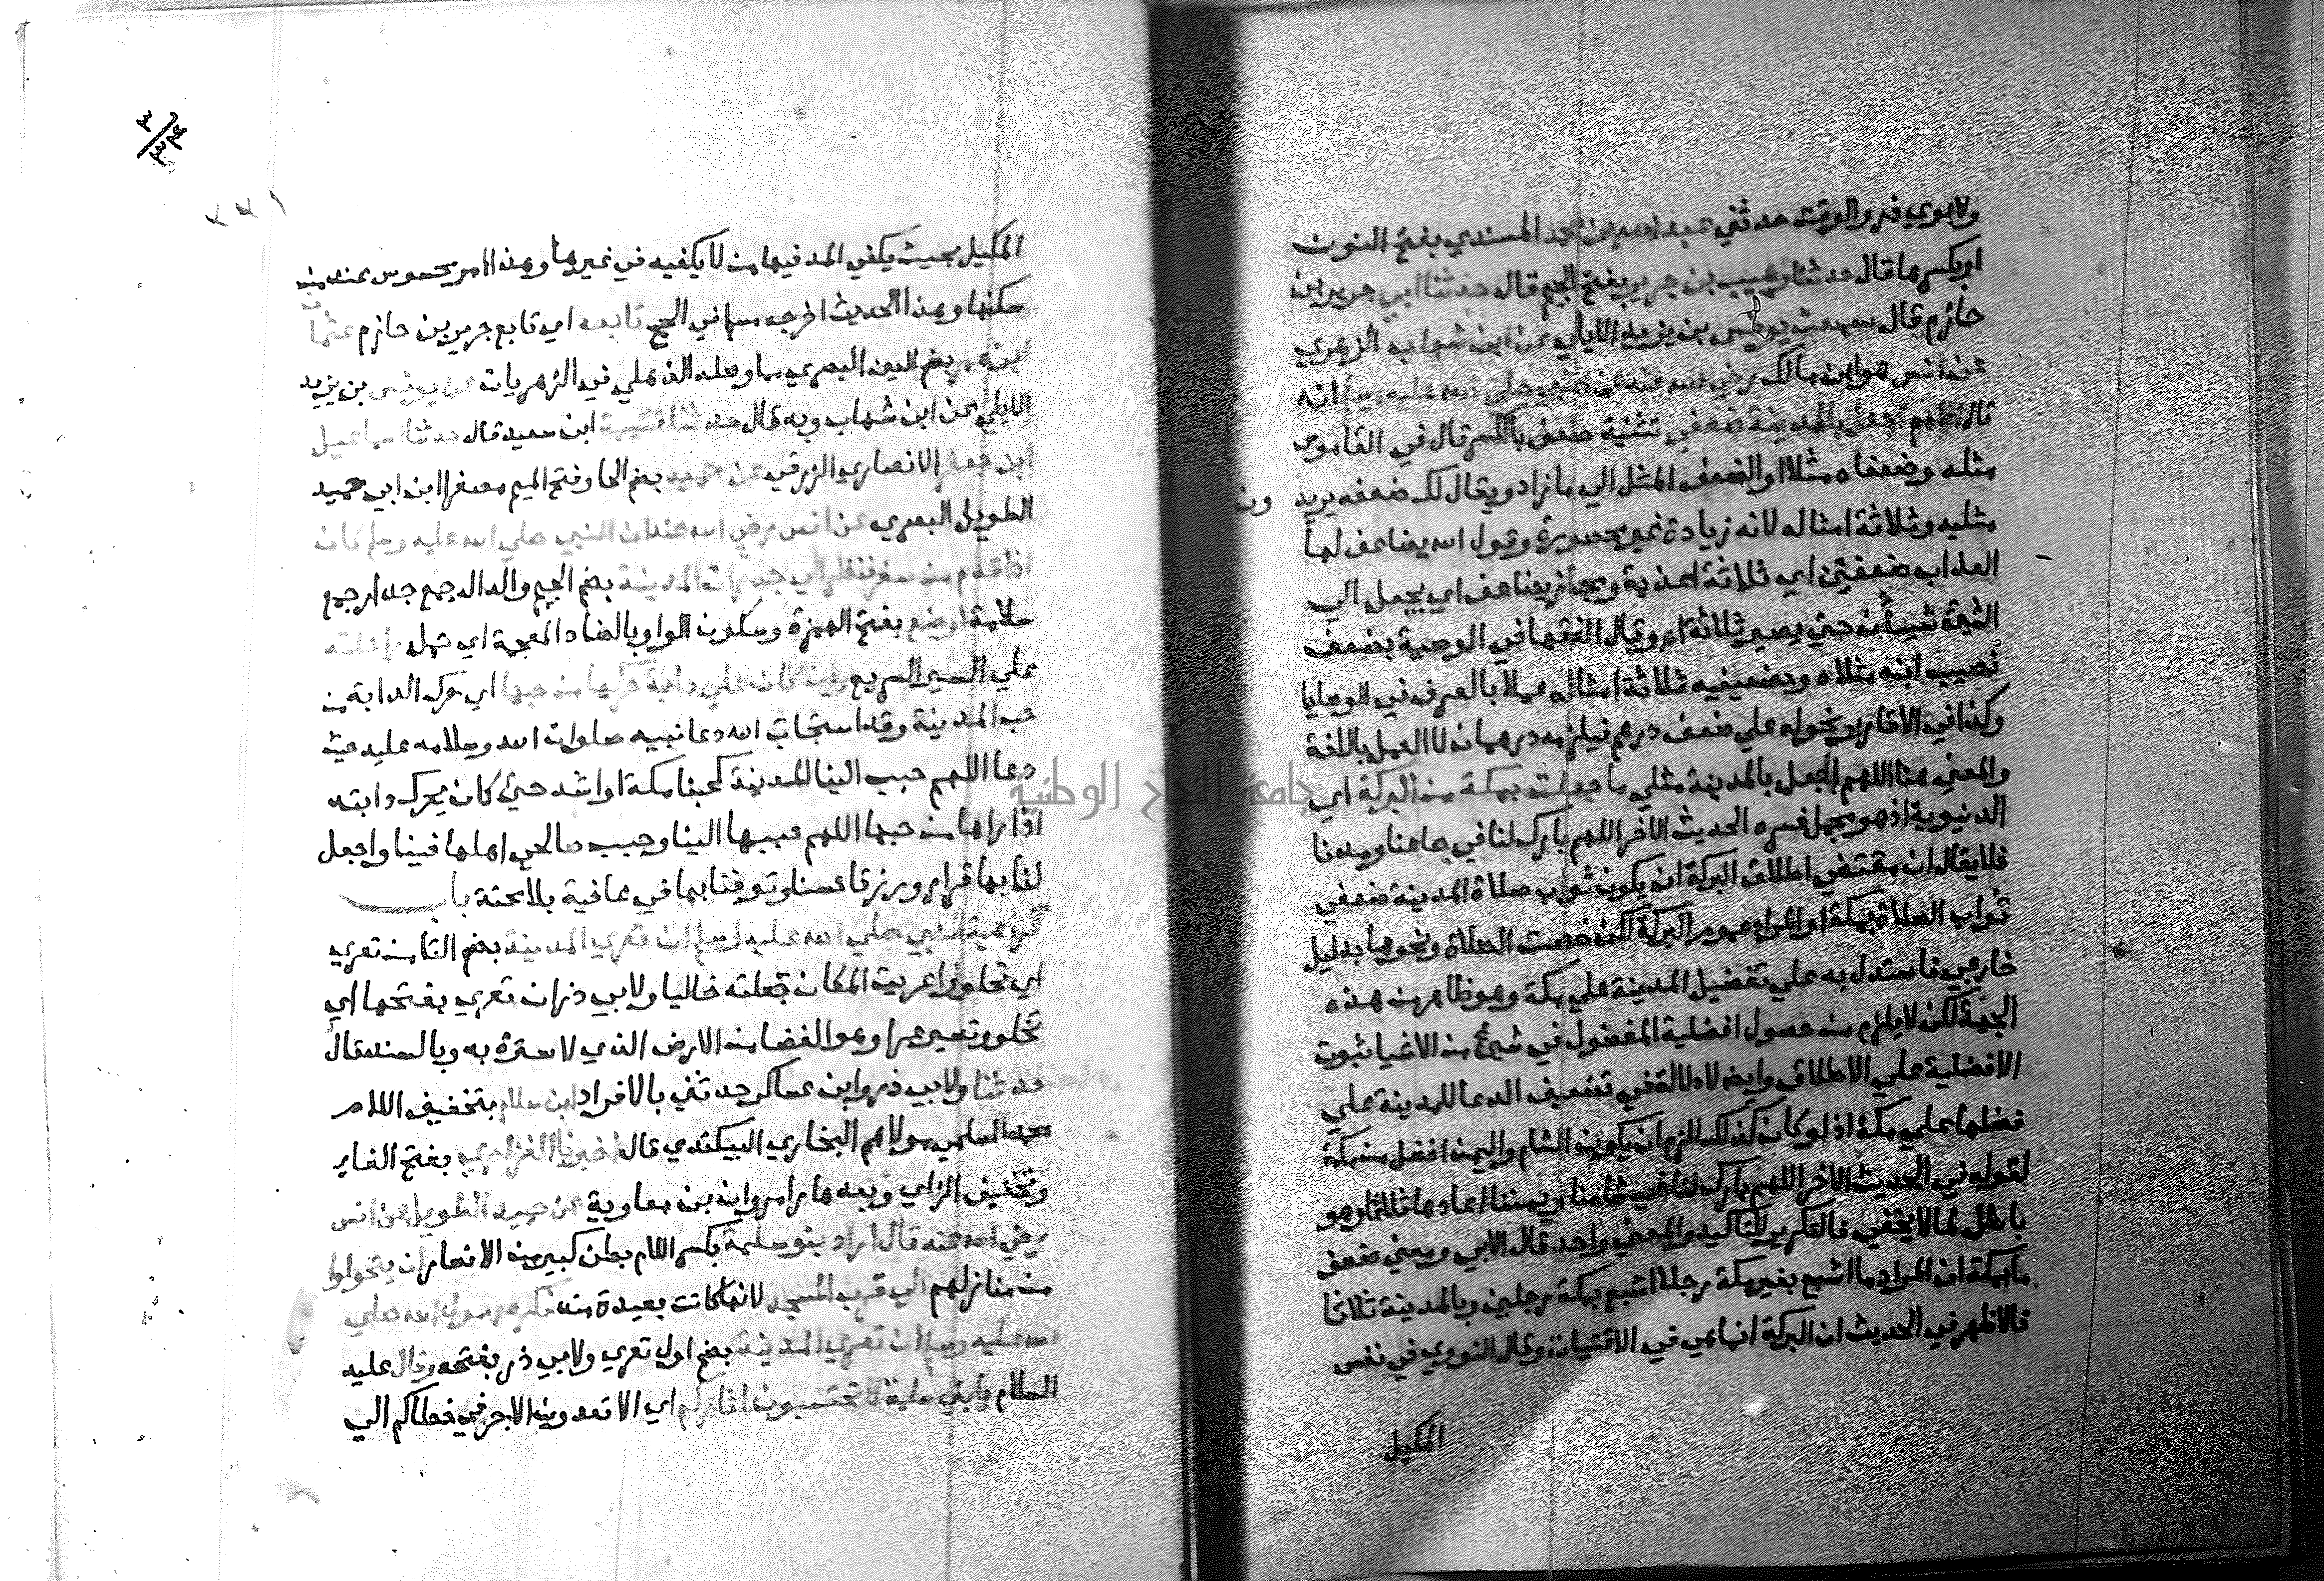 ولابوي ذر والوقت حدثني عبد الله بن محمد المسندي بفتح النون
او بكسرها قال حدثنا وهب بن جرير بفتح الجيم قال حدثنا ابي جرير بن
حازم قال سمعت يونس بن يزيد الايلي عن ابن شهاب الزهري
عن انس هو ابن مالك رضي الله عنه عن النبي صلي الله عليه وسلم انه
قال اللهم اجعل بالمدينة ضعفي تثنية ضعف بالكسر قال في القاموس
مثله وضعفاه مثلاه او الضعف المثل الي ما زاد ويقال لك ضعفه يريدون
مثليه وثلاثة امثاله لانه زيادة غير محصورة وقول الله يضاعف لها
العذاب ضعفين اي ثلاثة اعذبة ومجاز يضاعف اي يجعل الي
الشيء شيآن حتي يصير ثلاثة اه وقال الفقها في الوصية بضعف
نصيب ابنه مثلاه وبضعفيه ثلاثة امثاله عملا بالعرف في الوصايا
وكذا في الاقارير نحو له علي ضعف درهم فيلزمه درهمان لا العمل باللغة
والمعني هنا اللهم اجعل بالمدينة مثلي ما جعلت بمكة من البركة اي
الدنيوية اذ هو مجمل فسره الحديث الاخر اللهم بارك لنا في صاعنا ومدنا
فلا يقال ان مقتضي اطلاق البركة ان يكون ثواب صلاة المدينة ضعفي
ثواب الصلاة بمكة او المراد عموم البركة لكن خصت الصلاة ونحوها بدليل
خارجي فاستدل به علي تفضيل المدينة علي مكة وهو ظاهر من هذه
الجهة لكن لا يلزم من حصول افضلية المفضول في شيء من الاشيا ثبوت
الافضلية علي الاطلاق وايضا لا دلالة في تضعيف الدعا للمدينة علي
فضلها علي مكة اذ لو كان كذلك للزم ان يكون الشام واليمن افضل من مكة
لقوله في الحديث الاخر اللهم بارك لنا في شامنا ويمننا اعادها ثلاثا وهو
باطل لما لا يخفي فالتكرير للتاكيد والمعني واحد قال الابي ومعني ضعف
ما بمكة ان المراد ما اشبع بغير مكة رجلا اشبع بمكة رجلين وبالمدينة ثلاثا
فالاظهر في الحديث ان البركة انما هي في الاقتيات وقال النووي في نفس
المكيل
المكيل بحيث يكفي المد فيها من لا يكفيه في غيرها وهذا امر محسوس عند من
سكنها وهذا الحديث اخرجه مسلم في الحج تابعه اي تابع جرير بن حازم عثمان
ابن عمر بضم العين البصري مما وصله الذهلي في الزهريات عن يونس بن يزيد
الايلي عن ابن شهاب وبه قال حدثنا قتيبة ابن سعيد قال حدثنا اسماعيل
ابن جعفر الانصاري الزرقي عن حميد بضم الحا وفتح الميم مصغرا ابن ابي حميد
الطويل البصري عن انس رضي الله عنه ان النبي صلي الله عليه وسلم كان
اذا قدم من سفر فنظر الي جدرات المدينة بضم الجيم والدال جمع جدر جمع
سلامة اوضع بفتح الهمزة وسكون الواو بالضاد المعجمة اي حمل راحلته
علي السير السريع وان كان علي دابة حركها من حبها اي حرك الدابة من
حب المدينة وقد استجاب الله دعا نبيه صلوات الله وسلامه عليه حيث
دعا اللهم حبب الينا المدينة كحبنا مكة او اشد حتي كان يحرك دابته
اذا راها من حبها اللهم حببها الينا وحبب صالحي اهلها فينا واجعل
لنا بها قرارا ورزقا حسنا وتوفنا بها في عافية بلا محنة باب
كراهية النبي صلي الله عليه وسلم ان تعري المدينة بضم التا من تعري
اي تخلو واعريت المكان جعلته خاليا ولابي ذر ان تعري بفتحها اي
تخلو وتصير عرا وهو الفضا من الارض الذي لا سترة به وبالسند قال
حدثنا ولابي ذر وابن عساكر حدثني بالافراد ابن سلام بتخفيف اللام
محمد السلمي مولاهم البخاري البيكندي قال اخبرنا الفزاري بفتح الفا
وتخفيف الزاي وبعدها را مروان بن معاوية عن حميد الطويل عن انس
رضي الله عنه قال اراد بنو سلمة بكسر اللام بطن كبير من الانصار ان يتحولوا
من منازلهم الي قرب المسجد لانها كانت بعيدة منه فكره رسول الله صلي
الله عليه وسلم ان تعري المدينة بضم اول تعري ولابي ذر بفتحه وقال عليه
السلام يا بني سلمة الا تحتسبون اثاركم اي الا تعدون الاجر في خطاكم الي
٢٣١
جامعة النجاح الوطنية